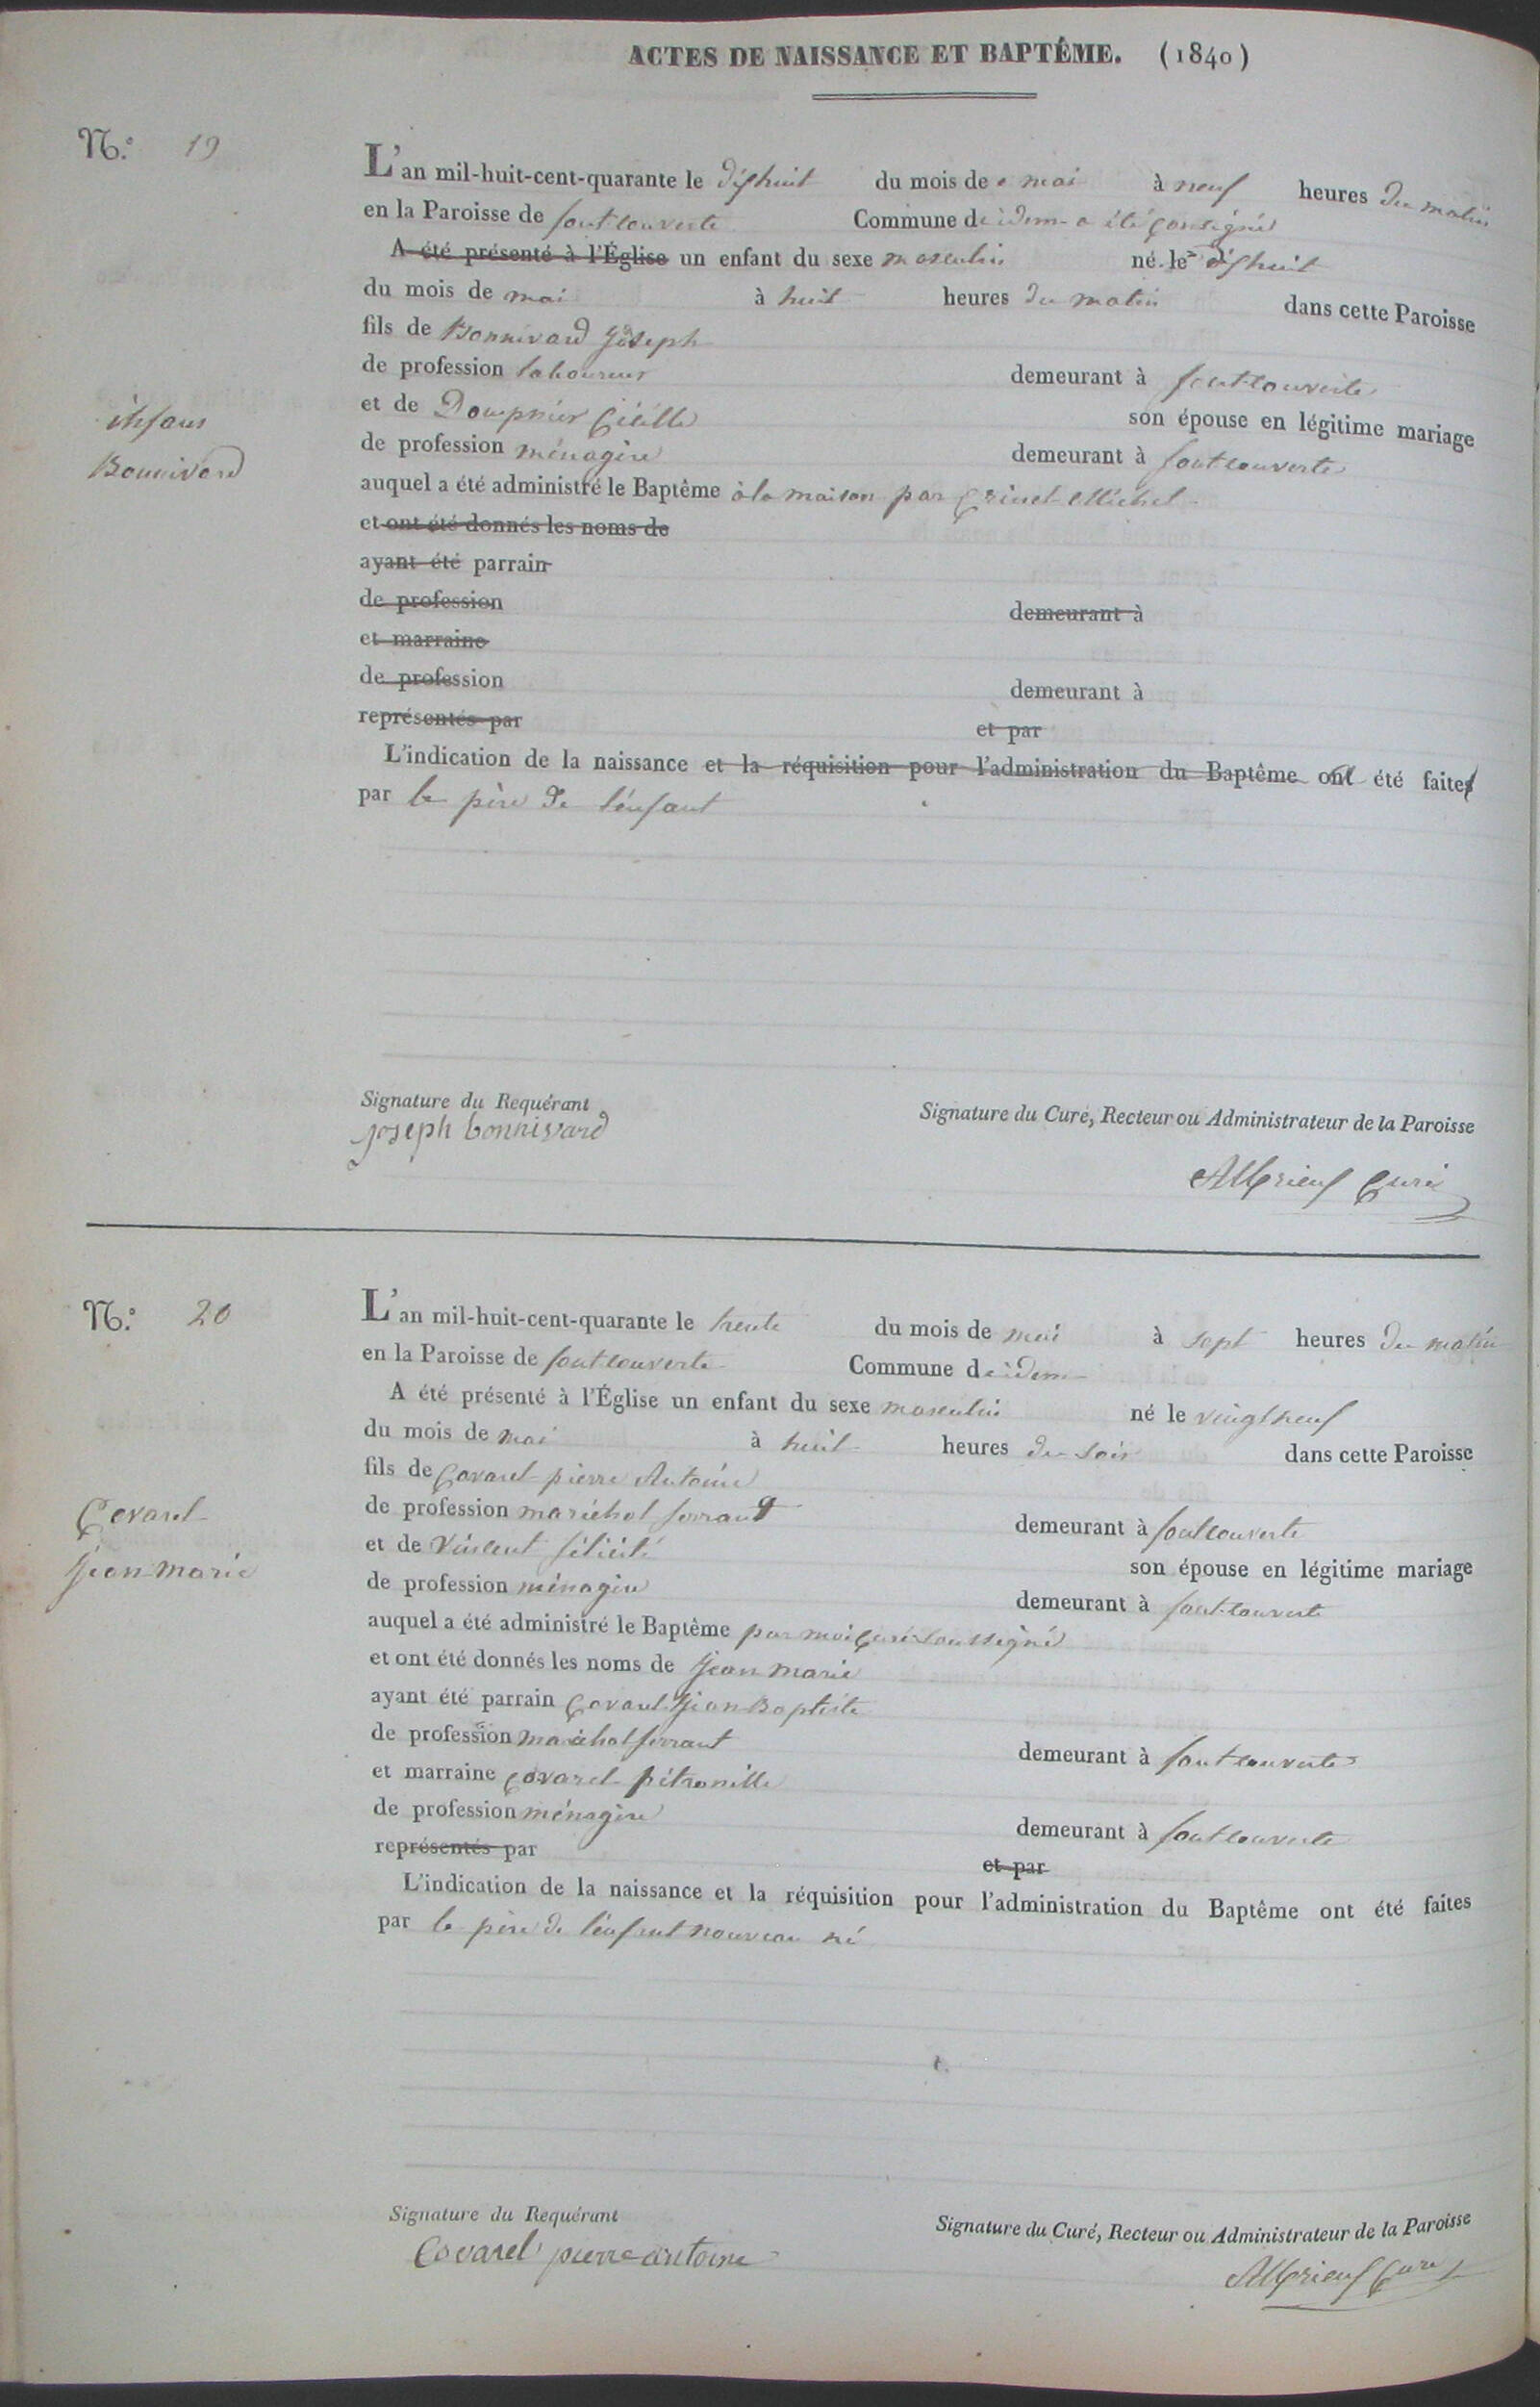 ACTES DE NAISSANCE ET BAPTÊME. (1840)
N.° 19
L'an mil-huit-cent-quarante le dishuit du mois de mai à neuf heures du matin
en la Paroisse de fontcouverte Commune de idem a été consigné
A été présenté à l'Église un enfant du sexe masculin né le dishuit
du mois de mai à huit heures du matin dans cette Paroisse
fils de Bonnivard Joseph
de profession laboureur demeurant à fontcouverte
enfant
Bonnivard
et de Dompnier son épouse en légitime mariage
de profession ménagère demeurant à fontcouverte
auquel a été administré le Baptême à la maison par Michel
et ont été donnés les noms de
ayant été parrain
de profession demeurant à
et marraine
de profession demeurant à
représentés par et par
L'indication de la naissance et la réquisition pour l'administration du Baptême a été faite
par le père de l'enfant
Signature du Requérant
joseph bonnivard
Signature du Curé, Recteur ou Administrateur de la Paroisse
Curé
N.° 20
L'an mil-huit-cent-quarante le trente du mois de mai à sept heures du matin
en la Paroisse de fontcouverte Commune de idem
A été présenté à l'Église un enfant du sexe masculin né le vingt neuf
du mois de mai à huit heures du soir dans cette Paroisse
fils de Covarel pierre Antoine
Covarel
Jean marie
de profession maréchal ferrant demeurant à fontcouverte
et de Vincent félicité son épouse en légitime mariage
de profession ménagère demeurant à fontcouverte
auquel a été administré le Baptême par moi curé soussigné
et ont été donnés les noms de Jean marie
ayant été parrain Covarel Jean Baptiste
de profession maréchal ferrant demeurant à fontcouverte
et marraine covarel pétronille
de profession ménagère demeurant à fontcouverte
représentés par et par
L'indication de la naissance et la réquisition pour l'administration du Baptême ont été faites
par le père de l'enfant nouveau né
Signature du Requérant
Covarel pierre antoine
Signature du Curé, Recteur ou Administrateur de la Paroisse
Curé